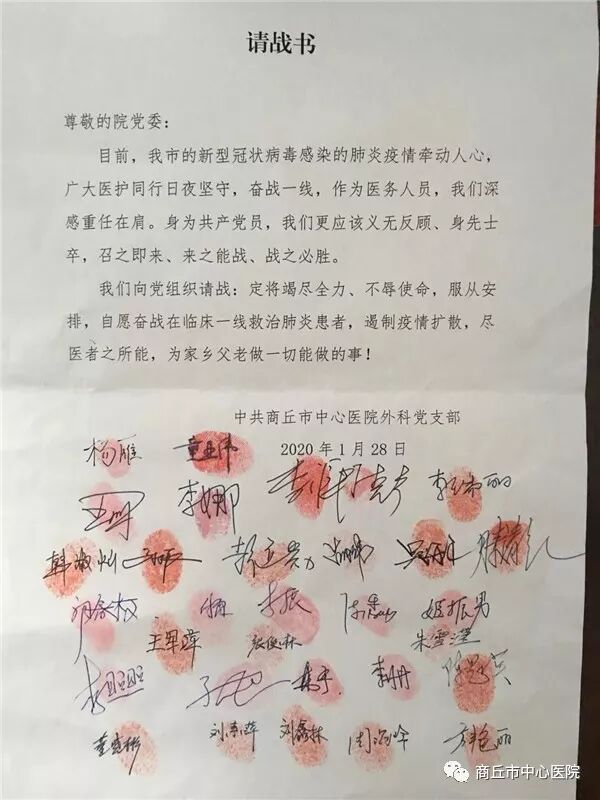 请战书
尊敬的院党委：
目前，我市的新型冠状病毒感染的肺炎疫情牵动人心，
广大医护同行日夜坚守，奋战一线，作为医务人员，我们深
感重任在肩。身为共产党员，我们更应该义无反顾、身先士
卒，召之即来、来之能战、战之必胜。
我们向党组织请战：定将竭尽全力、不辱使命，服从安
排，自愿奋战在临床一线救治肺炎患者，遏制疫情扩散，尽
医者之所能，为家乡父老做一切能做的事！
中共商丘市中心医院外科党支部
2020年1月28日
杨雁
李娜
李振 姬振男
王军萍 张俊林 朱雪滢
李丹
刘鑫林
商丘市中心医院